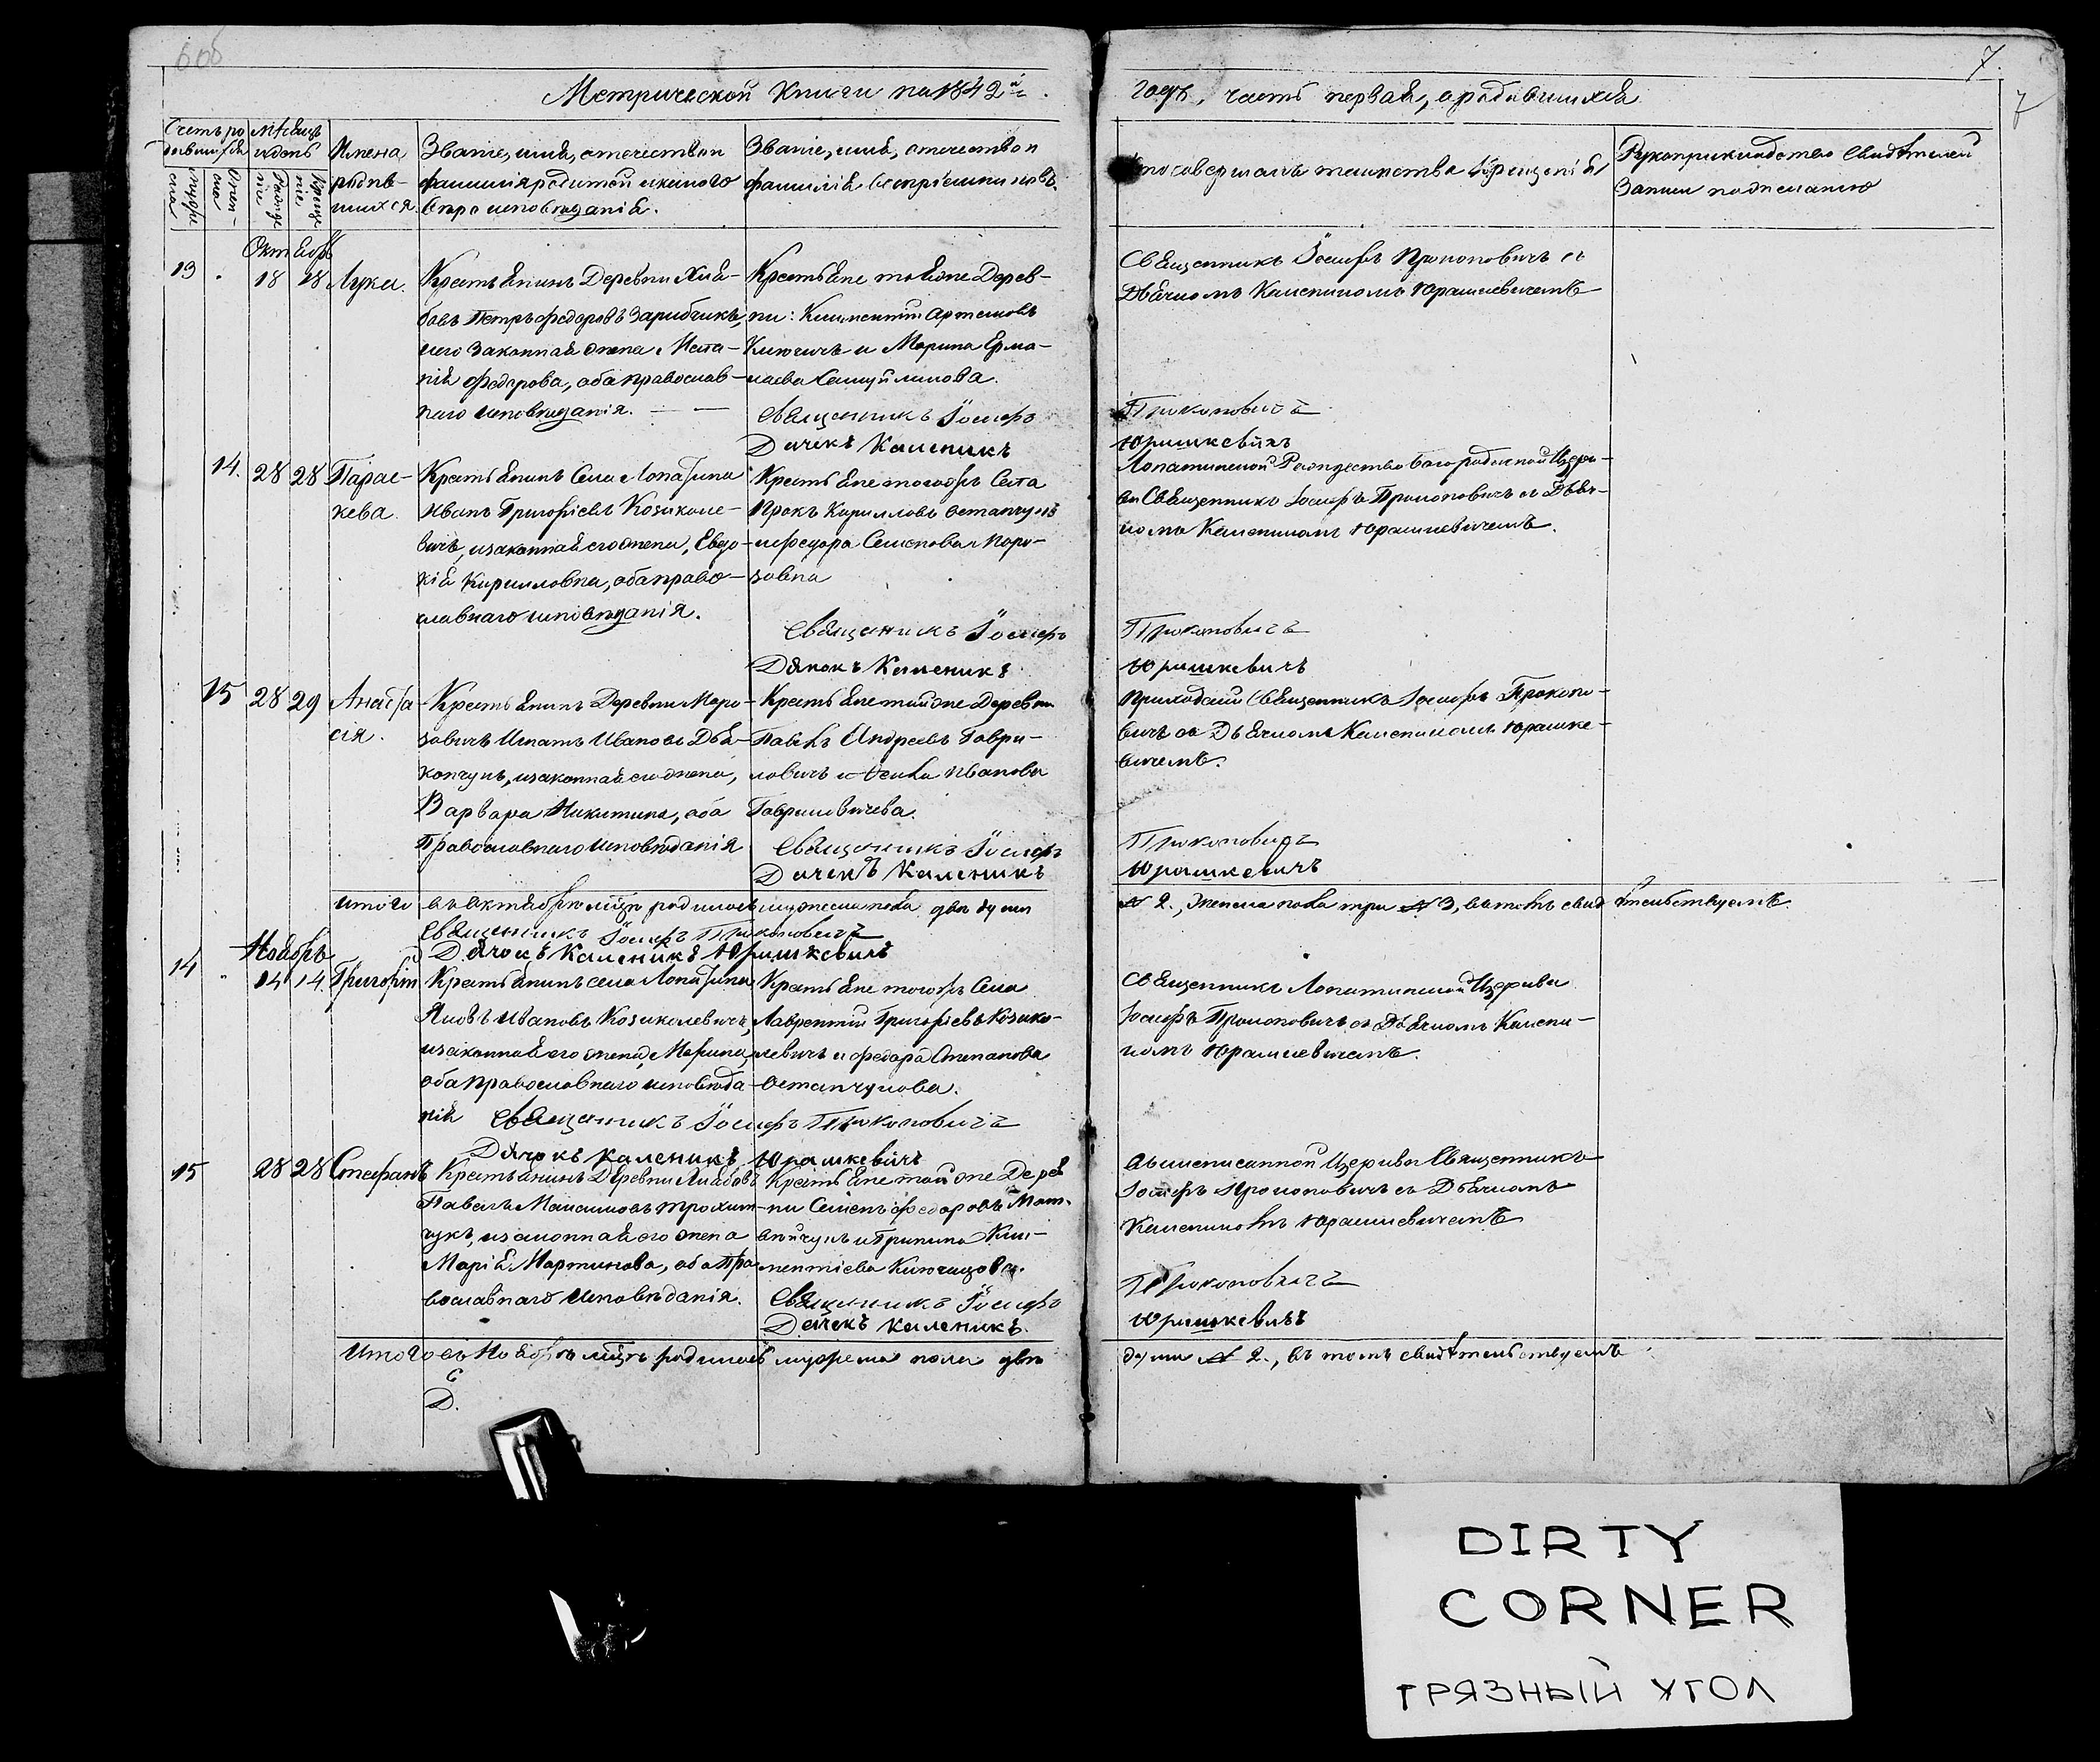 606
7
7
Метрической Книги на 1842й
годъ, часть первая, о родившихся
Счетъ ро
дившихся
Мѣсяцъ
и день
Имена
родив-
шихся
Званіе, имя, отечество и
фамилія родителей и какого
вѣроисповѣданія.
Званіе, имя, отечество и
фамилія воспріемниковъ.
Кто совершалъ таинство крещенія
Рукоприкладство свидѣтелей
записи по желанію
Октябрь
13
18
18
Лука.
Крестьянинъ Деревни Хля-
бовъ Петръ Федоровъ Зарибчикъ,
и его законная жена
Федорова, оба православ-
наго исповѣданія.
Крестьяне тоеже Дерев-
ни: Климентій Артемовъ
Ключичъ и Марина Ермо-
лаева Самуйликова.
Священникъ Іосифъ
Дячекъ Каленикъ
Священникъ Іосифъ Прокоповичъ съ
Дьячкомъ Каленикомъ Юрашкевичемъ
Прокоповичъ
Юрашкевичъ
14.
28
28
Парас-
кева
Крестьянинъ Села Лопатина
Иванъ Григорьевъ Козиколе-
вичъ, и законная его жена, Евдо-
кія Кирилловна, оба право-
славнаго исповѣданія.
Крестьяне тогожъ Села
Прокъ Кирилловъ Остапчукъ
и Федора Семенова Моро-
зовна
Священикъ Іосифъ
Дячокъ Каленикъ
Лопатинской Рождество Богородичной Церк-
ви Священникъ Іосифъ Прокоповичъ съ Дьяч-
комъ Каленикомъ Юрашкевичемъ.
Прокоповичъ
Юрашкевичъ
15
28
29
Анаста
сія.
Крестьянинъ Деревни Моро-
зовичъ Игнатъ Ивановъ Дья-
кончукъ, и законная его жена,
Варвара Никитина, оба
Православнаго исповѣданія
Крестьяне тойже Деревни
Павелъ Андреевъ Гаври-
ловичъ и Фекла Иванова
Гавриловичева.
Священикъ Іосифъ
Дячекъ Каленикъ
Приходскій Священникъ Іосифъ Прокопо-
вичъ съ Дьячкомъ Каленикомъ Юрашке-
вичемъ.
Прокоповичъ
Юрашкевичъ
Итого въ Октябрѣ мцѣ родилось мужеска пола двѣ души
№ 2., Женска пола три № 3, въ томъ свидѣтельствуемъ.
Священикъ Іосифъ Прокоповичъ
Дячокъ Каленикъ Юрашкевичъ
Ноябрь
14
14
14.
Григорій
Крестьянинъ села Лопатина
Яковъ Ивановъ Козиколевичъ,
и законная его жена Марина,
оба православнаго исповѣда-
нія
Крестьяне тогожъ Села
Лаврентій Григорьевъ Козико-
левичъ и Федора Степанова
Остапчукова.
Священикъ Іосифъ Прокоповичъ
Дячокъ Каленикъ Юрашкевичъ
Священникъ Лопатинской Церкви
Іосифъ Прокоповичъ съ Дьячкомъ Калени-
комъ Юрашкевичемъ.
15
28
28
Стефанъ
Крестьянинъ Деревни Хлябовъ
Павелъ Максимовъ Трохим-
чукъ, и законная его жена
Марія Мартинова, оба Пра-
вославнаго исповѣданія.
Крестьяне тойже Дерев
ни Семенъ Федоровъ Мат-
вийчукъ и Грипина Кли-
ментіева Ключицова.
Священикъ Іосифъ
Дячекъ Каленикъ
Вышеписанной Церкви Священникъ
Іосифъ Прокоповичъ съ Дьячкомъ
Каленикомъ Юрашкевичемъ
Прокоповичъ
Юрашкевичъ
Итого въ Ноябрѣ мцѣ родилось мужеска пола двѣ
души № 2., въ томъ свидѣтельствуемъ
С
Д.
DIRTY
CORNER
ГРЯЗНЫЙ УГОЛ